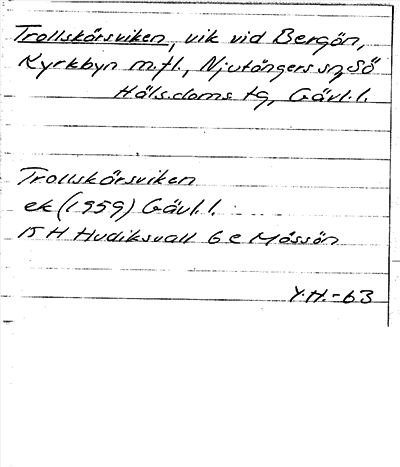 Trollskärsviken, vik vid Bergön,
Kyrkbyn m.fl., Njutångers sn, Sö
Häls. doms. tg, Gävl. l.
Trollskärsviken
ek (1959) Gävl. l.
15 H Hudiksvall 6 e Måssön
Y.H.-63